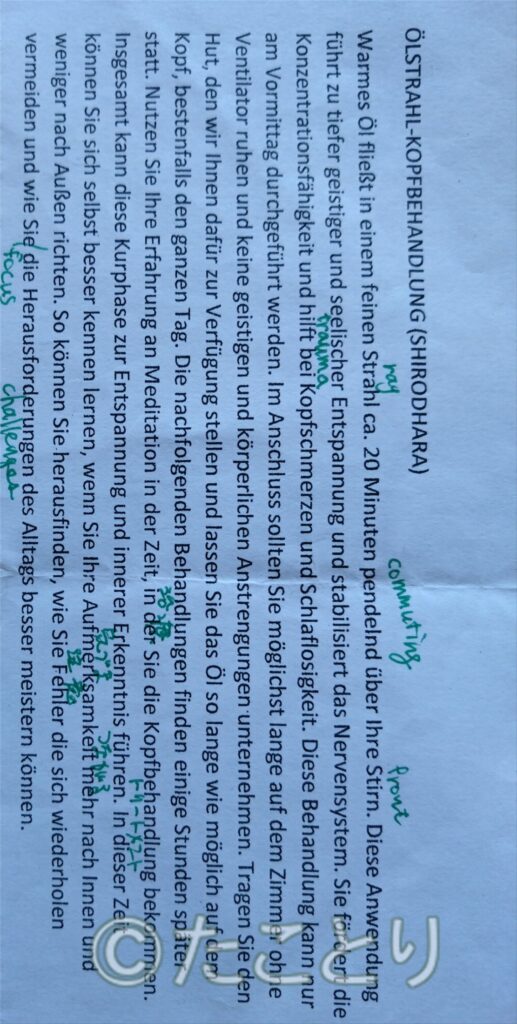 ÖLSTRAHL-KOPFBEHANDLUNG (SHIRODHARA)
ray commuting Pront
Warmes Öl fließt in einem feinen Strahl ca. 20 Minuten pendelnd über Ihre Stirn. Diese Anwendung
führt zu tiefer geistiger und seelischer Entspannung und stabilisiert das Nervensystem. Sie fördert die
trauma
Konzentrationsfähigkeit und hilft bei Kopfschmerzen und Schlaflosigkeit. Diese Behandlung kann nur
am Vormittag durchgeführt werden. Im Anschluss sollten Sie möglichst lange auf dem Zimmer ohne
Ventilator ruhen und keine geistigen und körperlichen Anstrengungen unternehmen. Tragen Sie den
Hut, den wir Ihnen dafür zur Verfügung stellen und lassen Sie das Öl so lange wie möglich auf dem
Kopf, bestenfalls den ganzen Tag. Die nachfolgenden Behandlungen finden einige Stunden später
statt. Nutzen Sie Ihre Erfahrung an Meditation in der Zeit, in der Sie die Kopfbehandlung bekommen.
トリートメント
Insgesamt kann diese Kurphase zur Entspannung und innerer Erkenntnis führen. In dieser Zeit
können Sie sich selbst besser kennen lernen, wenn Sie Ihre Aufmerksamkeit mehr nach Innen und
weniger nach Außen richten. So können Sie herausfinden, wie Sie Fehler die sich wiederholen
vermeiden und wie Sie die Herausforderungen des Alltags besser meistern können.
focus challenges